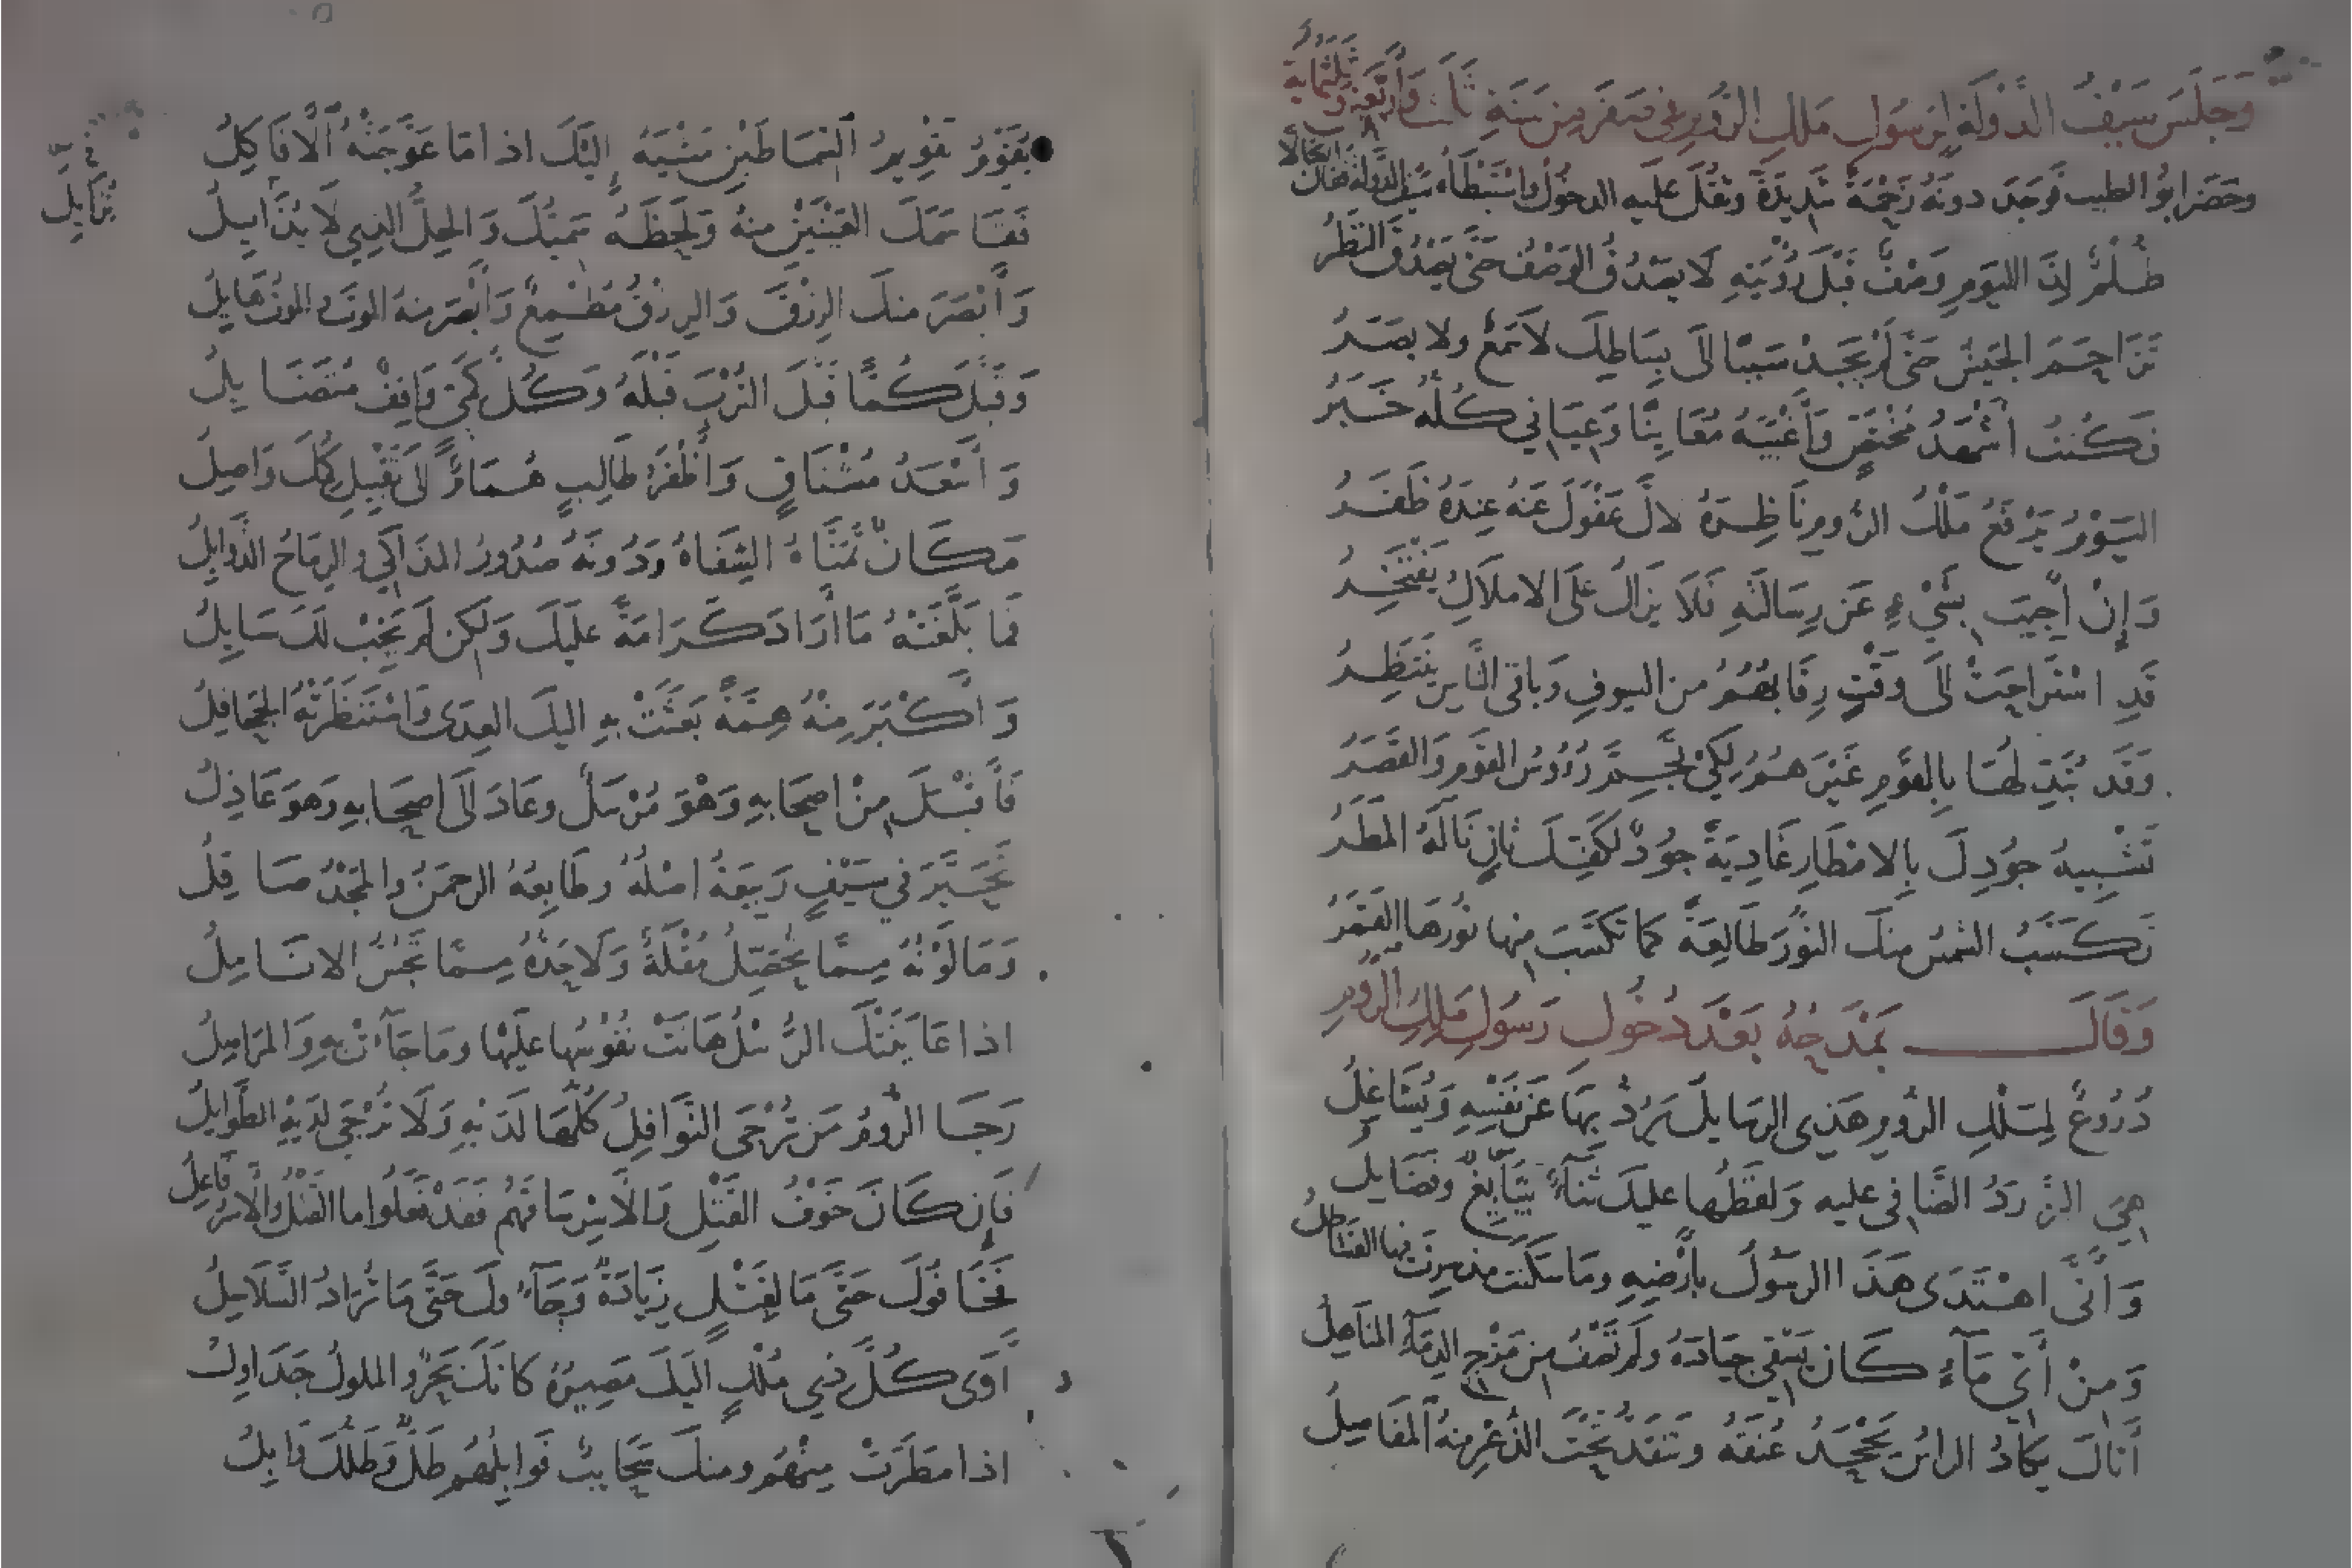 وَجَلَسَ سَيْفُ الدَّوْلَةِ لِرَسُولِ مَلِكِ الرُّومِ في صَفَرَ مِن سَنَةِ ثَلَاث وَأَرْبَعِينَ وثَلَثمائة
وحَضَر ابُو الطيب فَوَجَدَ دونَهُ زَحْمَةً شَدِيدَةً وثَقُلَ عَلَيه الدخُولُ واسْتَبْطَأهُ سَيْفُ الدَّولة فقال ارتجالًا
ظُلْمٌ لِذَا اليَومِ وَصْفٌ قَبْلَ رُؤْيَتِهِ لَا يَصْدُقُ الوَصْفُ حَتَّى يَصْدُقَ النَّظَرُ
تَزَاحَمَ الجَيشُ حَتَّى لَمْ يَجِدْ سَبَبًا إلَى بِسَاطِكَ لَا سَمْعٌ ولا بَصَرُ
فَكُنتُ أشْهَدَ مُخْتَصٍّ وَأغْيَبَهُ مُعَايِنًا وَعِيَانِي كُلُّهُ خَبَرُ
اليَوْمَ يَرْفَعُ مَلْكُ الرُّومِ نَاظِرَهُ لأنَّ عَفْوَكَ عَنهُ عِندَهُ ظَفَرُ
وَإِنْ أجَبْتَ بِشَيْءٍ عَن رِسَالَتِهِ فَلَا يَزَالُ عَلَى الاملَاكِ يَفْتَخِرُ
قَدِ اسْتَرَاحَتْ إلَى وَقْتٍ رِقَابُهُمُ من السيوفِ وَبَاقي النَّاسِ يَنتَظِرُ
وَقَد تُبَدِّلُهَا بِالقَومِ غَيْرَهُمُ لِكَيْ تَجِمَّ رُءُوسُ القَومِ وَالقَصَرُ
تَشْبِيهُ جُودِكَ بِالامْطَارِ غَادِيَةً جُودٌ لِكَفِّكَ ثانٍ نَالَهُ المَطَرُ
تَكَسَّبُ الشمسُ منكَ النُّورَ طَالِعَةً كما تَكَسَّبَ منها نُورَهَا القَمَرُ
وَقَالَ يَمْدَحُهُ بَعْدَ دُخُولِ رَسُولِ مَلِكِ الرُّومِ
دُرُوعٌ لِمَلْكِ الرُّومِ هَذِي الرسَايلُ يَرُدُّ بِهَا عَن نَفْسِهِ وَيُشَاغِلُ
هِيَ الزَّرَدُ الضَّافي عليه وَلَفظُها عليكَ ثَنَآءٌ سَابِغٌ وفَضَايلُ
وَأنَّى اهْتَدَى هَذَا الرسُولُ بأرْضِهِ ومَا سَكَنَت مذ سِرْتَ فيها القَسَاطلُ
وَمِنْ أيِّ مَآءٍ كَان يَسْقِي جِيَادَهُ ولَم تَصْفُ مِن مَزْجِ الدِمَآءِ المَنَاهِلُ
أتاكَ يَكادُ الرأسُ يَجْحَدُ عُنقَهُ وتَنقَدُّ تَحْتَ الذُّعْرِ مِنهُ المَفَاصِلُ
يُقَوِّمُ تَقْوِيمُ السِّمَاطَيْنِ مَشْيَهُ إِلَيْكَ اذا مَا عَوَّجَتْهُ الأَفَاكِلُ
فَقَاسَمَكَ العَيْنَيْنِ منهُ وَلَحظَهُ سَمِيُّكَ وَالخِلُّ الذِي لَا يُزَايلُ
يُزَايلُ
وَأبْصَرَ منكَ الرِزْقَ وَالرِزقُ مُطْمِعٌ وَأبْصَرَ منهُ الموتَ والموتُ هَايلُ
وَقَبَّلَ كُمًّا قَبَّلَ التُرْبَ قَبْلَهُ وَكُلُّ كَمِيٍّ وَاقِفٌ مُتَضَايلُ
وَأسْعَدُ مُشْتَاقٍ وَأظْفَرُ طَالِبٍ هُمَامٌ إلَى تَقْبِيلِ كُمِّكَ وَاصِلُ
مَكَانٌ تَمَنَّاهُ الشِفَاهُ وَدُونَهُ صُدُورُ المذَاكِي والرِمَاحُ الذَّوَابِلُ
فَما بَلَّغَتْهُ مَا أرَادَ كَرَامَةٌ عليكَ وَلَكِن لَم يَخِبْ لَكَ سَايلُ
وَأكْبَرَ مِنْهُ هِمَّةً بَعَثَتْ بِهِ اليكَ العِدَى وَاسْتَنظَرَتْهُ الجَحَافِلُ
فَأقْبَلَ مِنْ اصحَابِهِ وَهْوَ مُرْسَلٌ وعَادَ إلَى اصحَابِهِ وهوَ عَاذِلُ
تَحَيَّرَ في سَيْفٍ رَبِيعَةُ اصْلُهُ وطَابِعُهُ الرحمَنُ والمَجْدُ صَاقِلُ
وَمَا لَوْنُهُ مِمَّا تُحَصِّلُ مُقْلَةٌ وَلَا حَدُّهُ مِمَّا تَجُسُّ الانَامِلُ
اذا عَايَنَتْكَ الرُّسْلُ هَانَتْ نُفُوسُها عليْها ومَا جَآءَتْ بِهِ وَالمَرَاسِلُ
رَجَا الرُّومُ مَن تُرْجَى النَّوَافِلُ كُلُّهَا لَدَيْهِ وَلَا تُرْجَى لَدَيْهِ الطَّوَايِلُ
فَإن كَانَ خَوْفُ القَتْلِ وَالأسْرِ سَاقَهُم فَقَدْ فَعَلُوا ما القَتْلُ وَالأسْرُ فَاعِلُ
فَخَافُوكَ حَتَّى مَا لِقَتْلٍ زِيَادَةٌ وَجَآءُوكَ حَتَّى مَا تُرَادُ السَّلَاسِلُ
أرَى كُلَّ ذِي مُلْكٍ إلَيكَ مَصِيرُهُ كَانكَ بَحْرٌ والملوكُ جَدَاولُ
اذا مَطَرَتْ مِنهُم ومنكَ سَحَايِبٌ فَوَابِلُهُم طَلٌّ وَطَلُّكَ وَابِلُ